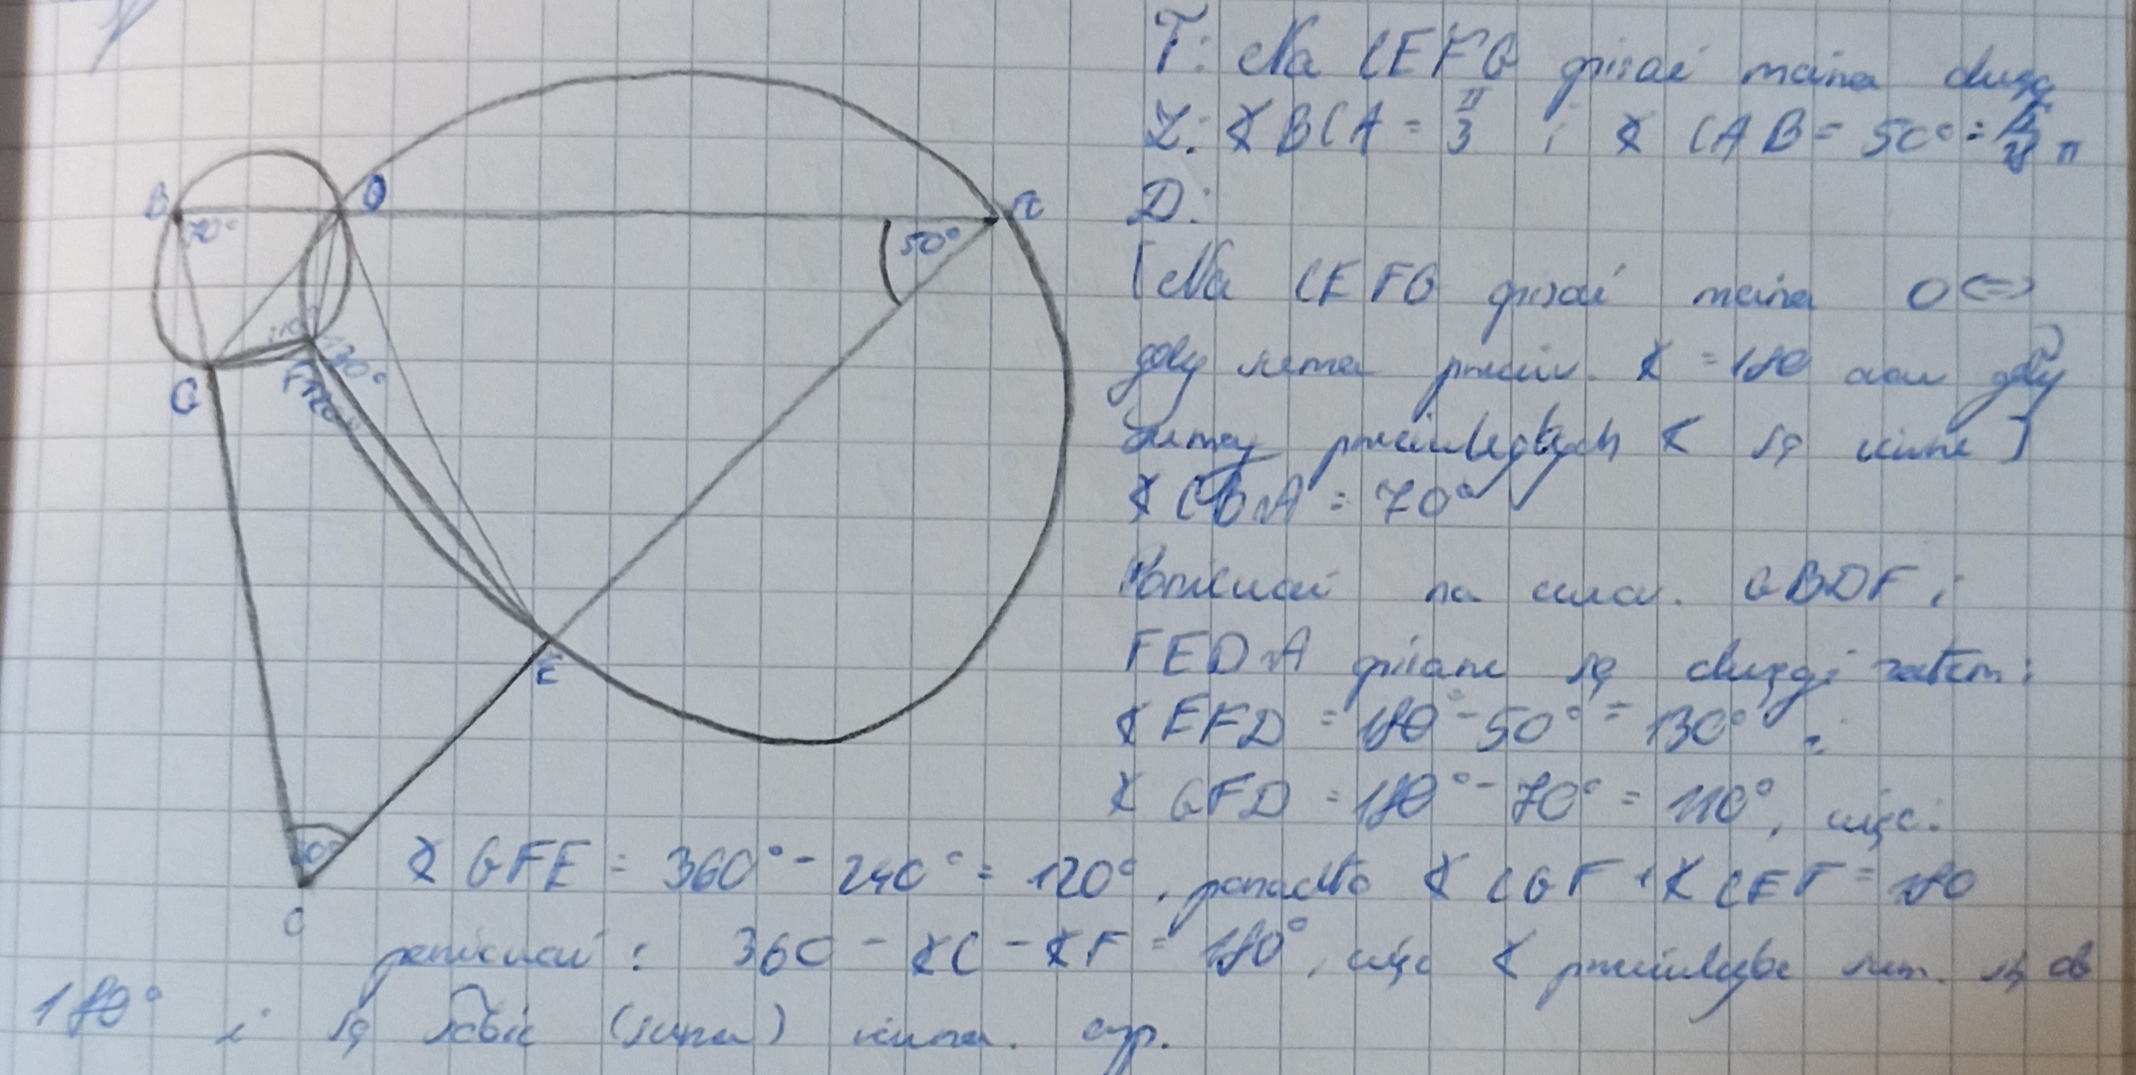 T: Na CEFG opisać można okrąg
Z: ∢ BCA = π/3 i ∢ CAB = 50° = 5/18 π
D:
[Na CEFG opisać można O <=>
gdy suma przeciw. ∢ = 180 oraz gdy
sumy przeciwległych ∢ są równe]
∢ CBA = 70°
Ponieważ na czwor. GBDF i
FEDA opisane są okręgi zatem:
∢ EFD = 180° - 50° = 130° i
∢ GFD = 180° - 70° = 110°, więc:
∢ GFE = 360° - 240° = 120°, ponadto ∢ CGF + ∢ CEF = 180
ponieważ: 360 - ∢C - ∢F = 180°, więc ∢ przeciwległe sum. są do
180° i są sobie (suma) równa. cnp.
B
D
A
70°
50°
110°
130°
G
F
120°
E
60°
C